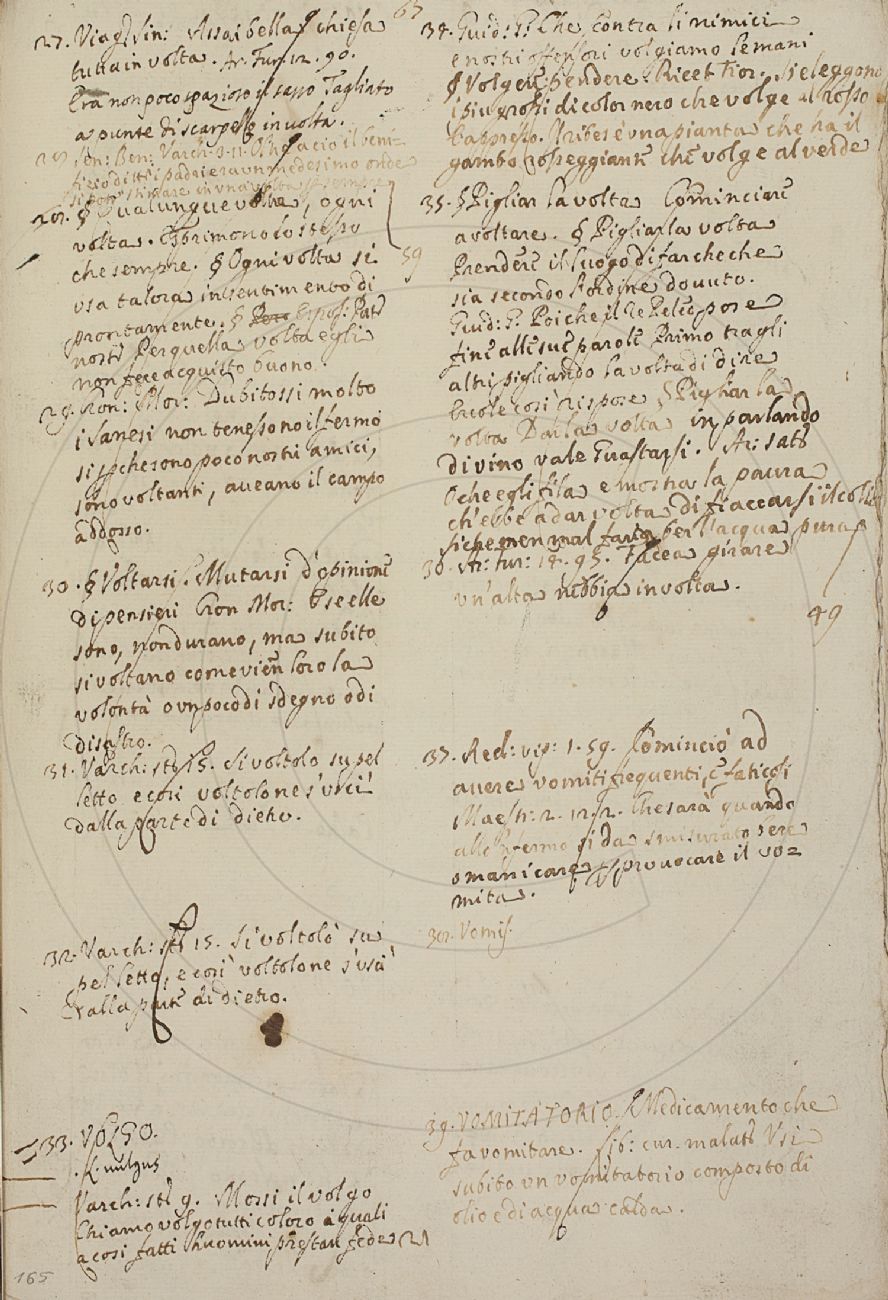 67
27. Viag: Sin: Assai bella chiesa
tutta in volta. Ar. Fur. 12. 90.
Era non poco spazioso il sasso Tagliato
a punte di scarpello in volta.
Sen: Ben: Varch: 3. 11.
28. § Qualunque volta, ogni
volta. Esprimono lo stesso
che sempre. § Ogni volta si
usa talora in sentimento di
prontamente. § Espos: Pat:
nostr Per quella volta egli
non fece acquisto buono.
59
29. Cron: Mor: Dubitossi molto
i Sanesi non tenessono il fermo
si perche sono poco nostri amici,
sono voltanti, aveano il campo
addosso.
30. § Voltarsi. Mutarsi d'opinione
di pensieri Cron Mor: E se elle
sono, non durano, ma subito
si voltano come vien loro la
volontà o un poco di sdegno o di
disastro.
31. Varch: st: 15. Si voltolo su pel
letto e così voltolone s'uscì
dalla parte di dietro.
32. Varch: st: 15. Si voltolò su
pel letto, e così voltolone s'uscì
dalla parte di dietro.
33. VOLGO.
L. vulgus
Varch: st: 9. Mossi il volgo
Chiamo volgo tutti coloro i quali
a così fatti huomini prestan fede
21
165
34. Guid: G: Che contra li nimici
e nostri offensori volgiamo le mani
§ Volgere pendere. Ricet Fior. Si eleggono
i piu grossi di color nero che volge al rosso
E appresso. Il ribes è una pianta che ha il
gambo rosseggiante che volge al verde
35. § Pigliar la volta Cominciare
a voltare. § Pigliar la volta
Prendere il luogo di far che che
sia secondo l'ordine dovuto.
Guid: G. Poiche il Re Peleo pose
fine alle sue parole Primo tra gli
altri pigliando la volta di dire
Ercole così rispose § Pigliar la
volta Dar la volta in parlando
di vino vale Guastarsi. Ar: sat:
O che egli fila e mostra la paura
ch'ebbe a dar volta di fiaccarsi il collo
siche men mal faria ber l'acqua pura
36. Ar: fur: 18. 95. Facea girare
un'alta nebbia in volta.
49
37. Red: vip: 1. 59. Cominciò ad
avere vomiti frequenti, e faticosi
Maestr: 2. 12. 2. Che sarà quando
allo 'nfermo si da smisurato bere
o manicare a provocare il vo=
mita.
38. Vomis.
39. VOMITATORIO. Medicamento che
fa vomitare. Lib: cur. malatt Usi
subito un vomitatorio composto di
olio e di acqua calda.